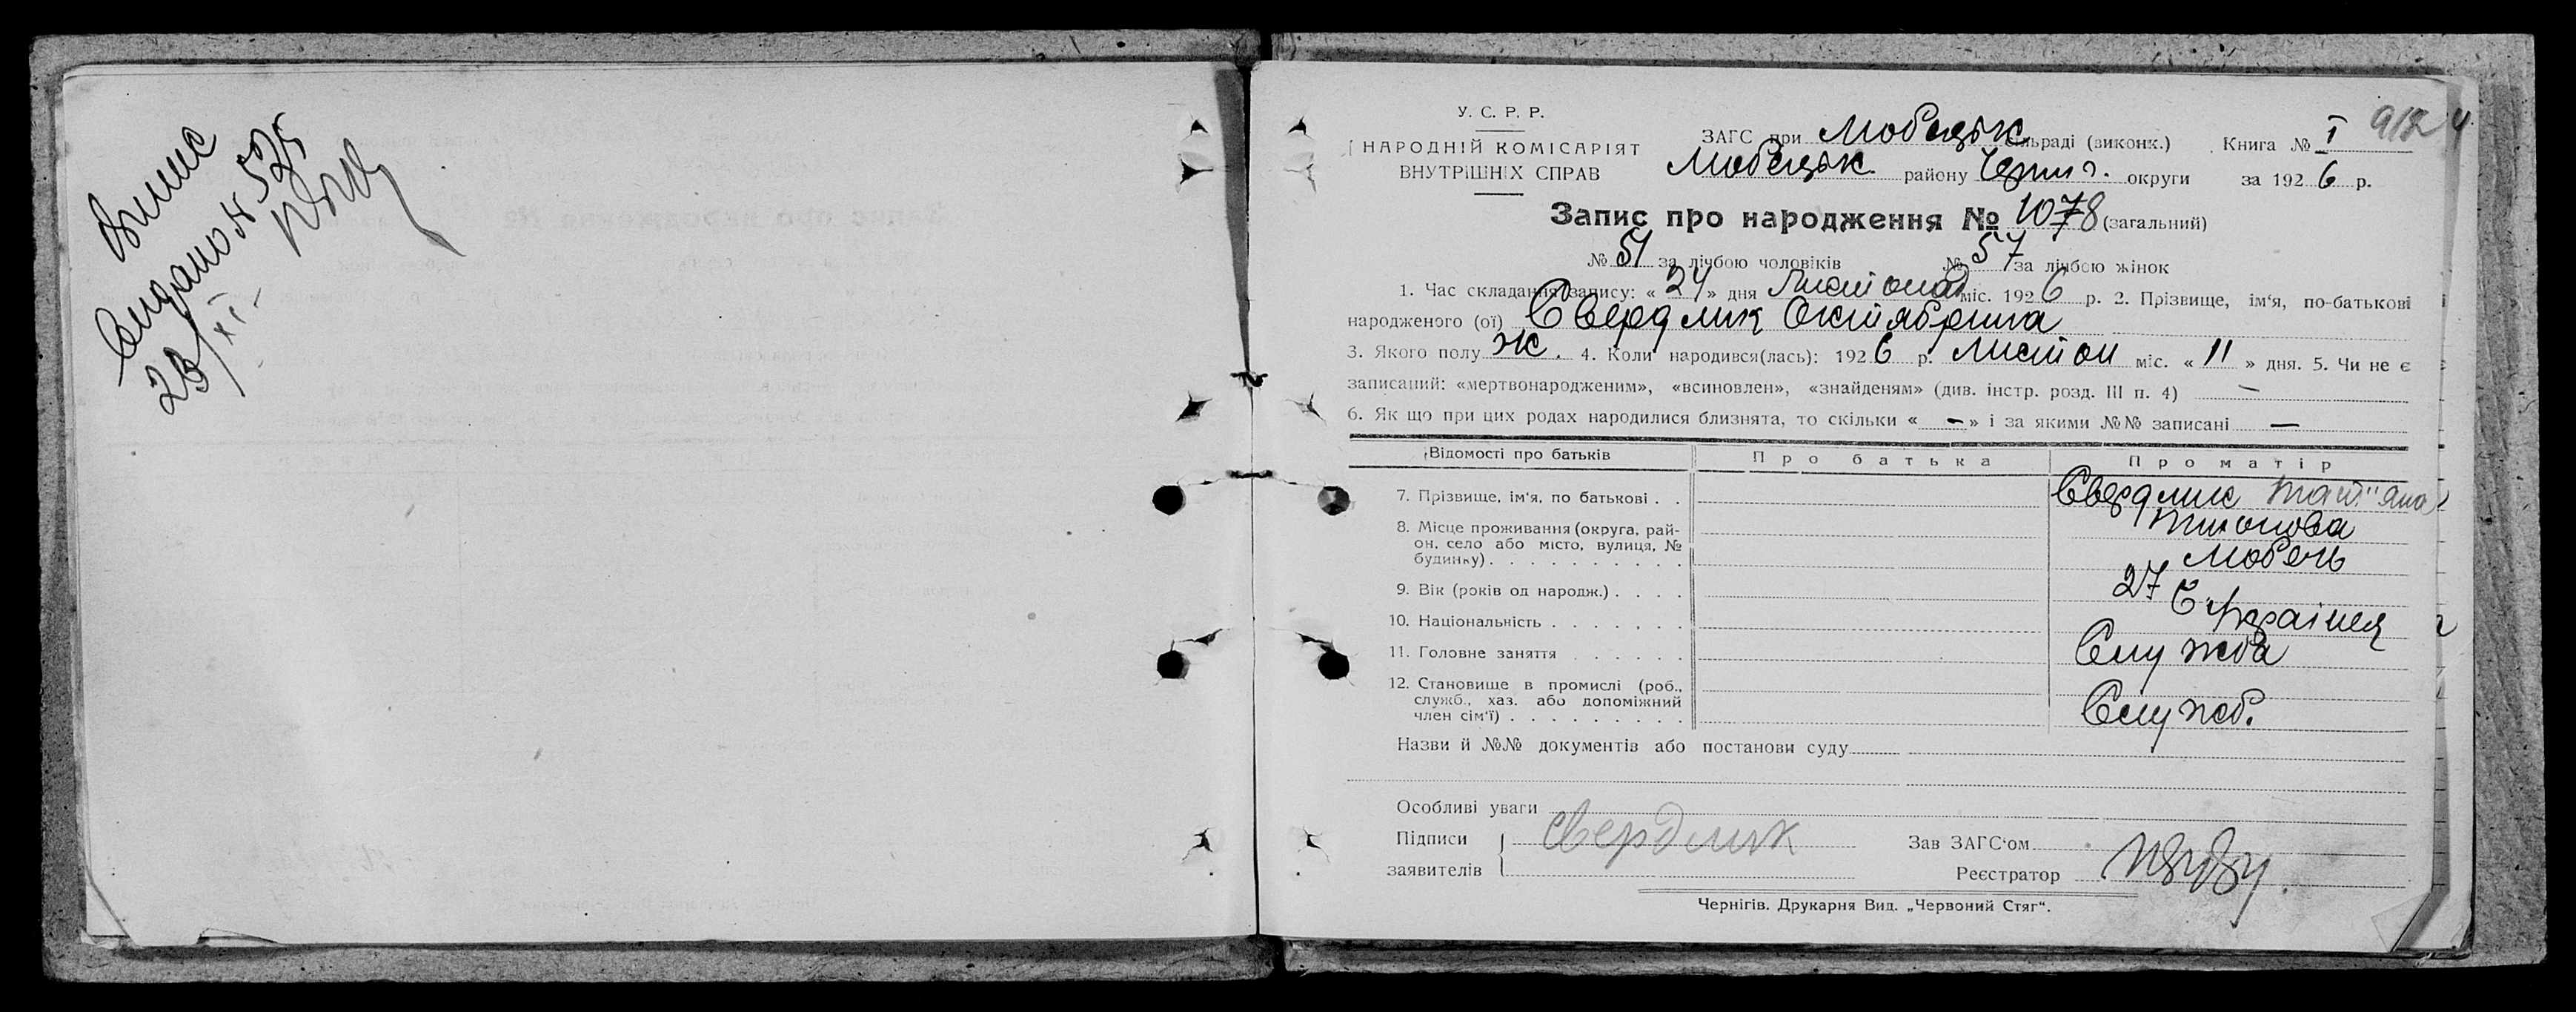 Випис
Видано № 525
23/XI–
У. С. Р. Р.
НАРОДНІЙ КОМІСАРІЯТ
ВНУТРІШНІХ СПРАВ
ЗАГС при Любецьк сільраді (виконк.) Книга № I
Любецьк району Черниг. округи за 1926 р.
Запис про народження № 1078 (загальний)
№ 51 за лічбою чоловіків № 57 за лічбою жінок
1. Час складання запису: « 24 » дня Листопад міс. 1926 р. 2. Прізвище, ім'я, по-батькові
народженого (ої) Свердлик Октябрина
3. Якого полу ж. 4. Коли народився(лась): 1926 р. листоп міс. « 11 » дня. 5. Чи не є
записаний: «мертвонародженим», «всиновлен», «знайденям» (див. інстр. розд. III п. 4) —
6. Як що при цих родах народилися близнята, то скільки « — » і за якими №№ записані —
Відомості про батьків Про батька Про матір
7. Прізвище, ім'я, по батькові . . Свердлик Тат"яна
Тихонова
8. Місце проживання (округа, рай-
он, село або місто, вулиця, №
будинку) . . . . . . . . . . Любеч
9. Вік (років од народж.) . . . . 27
10. Національність . . . . . . . Українка
11. Головне заняття . . . . . . Служба
12. Становище в промислі (роб.,
служб., хаз. або допоміжний
член сім'ї) . . . . . . . . . Служб.
Назви й №№ документів або постанови суду
Особливі уваги
Підписи Свердлик Зав ЗАГС'ом
заявителів Реєстратор
Чернігів. Друкарня Вид. „Червоний Стяг“.